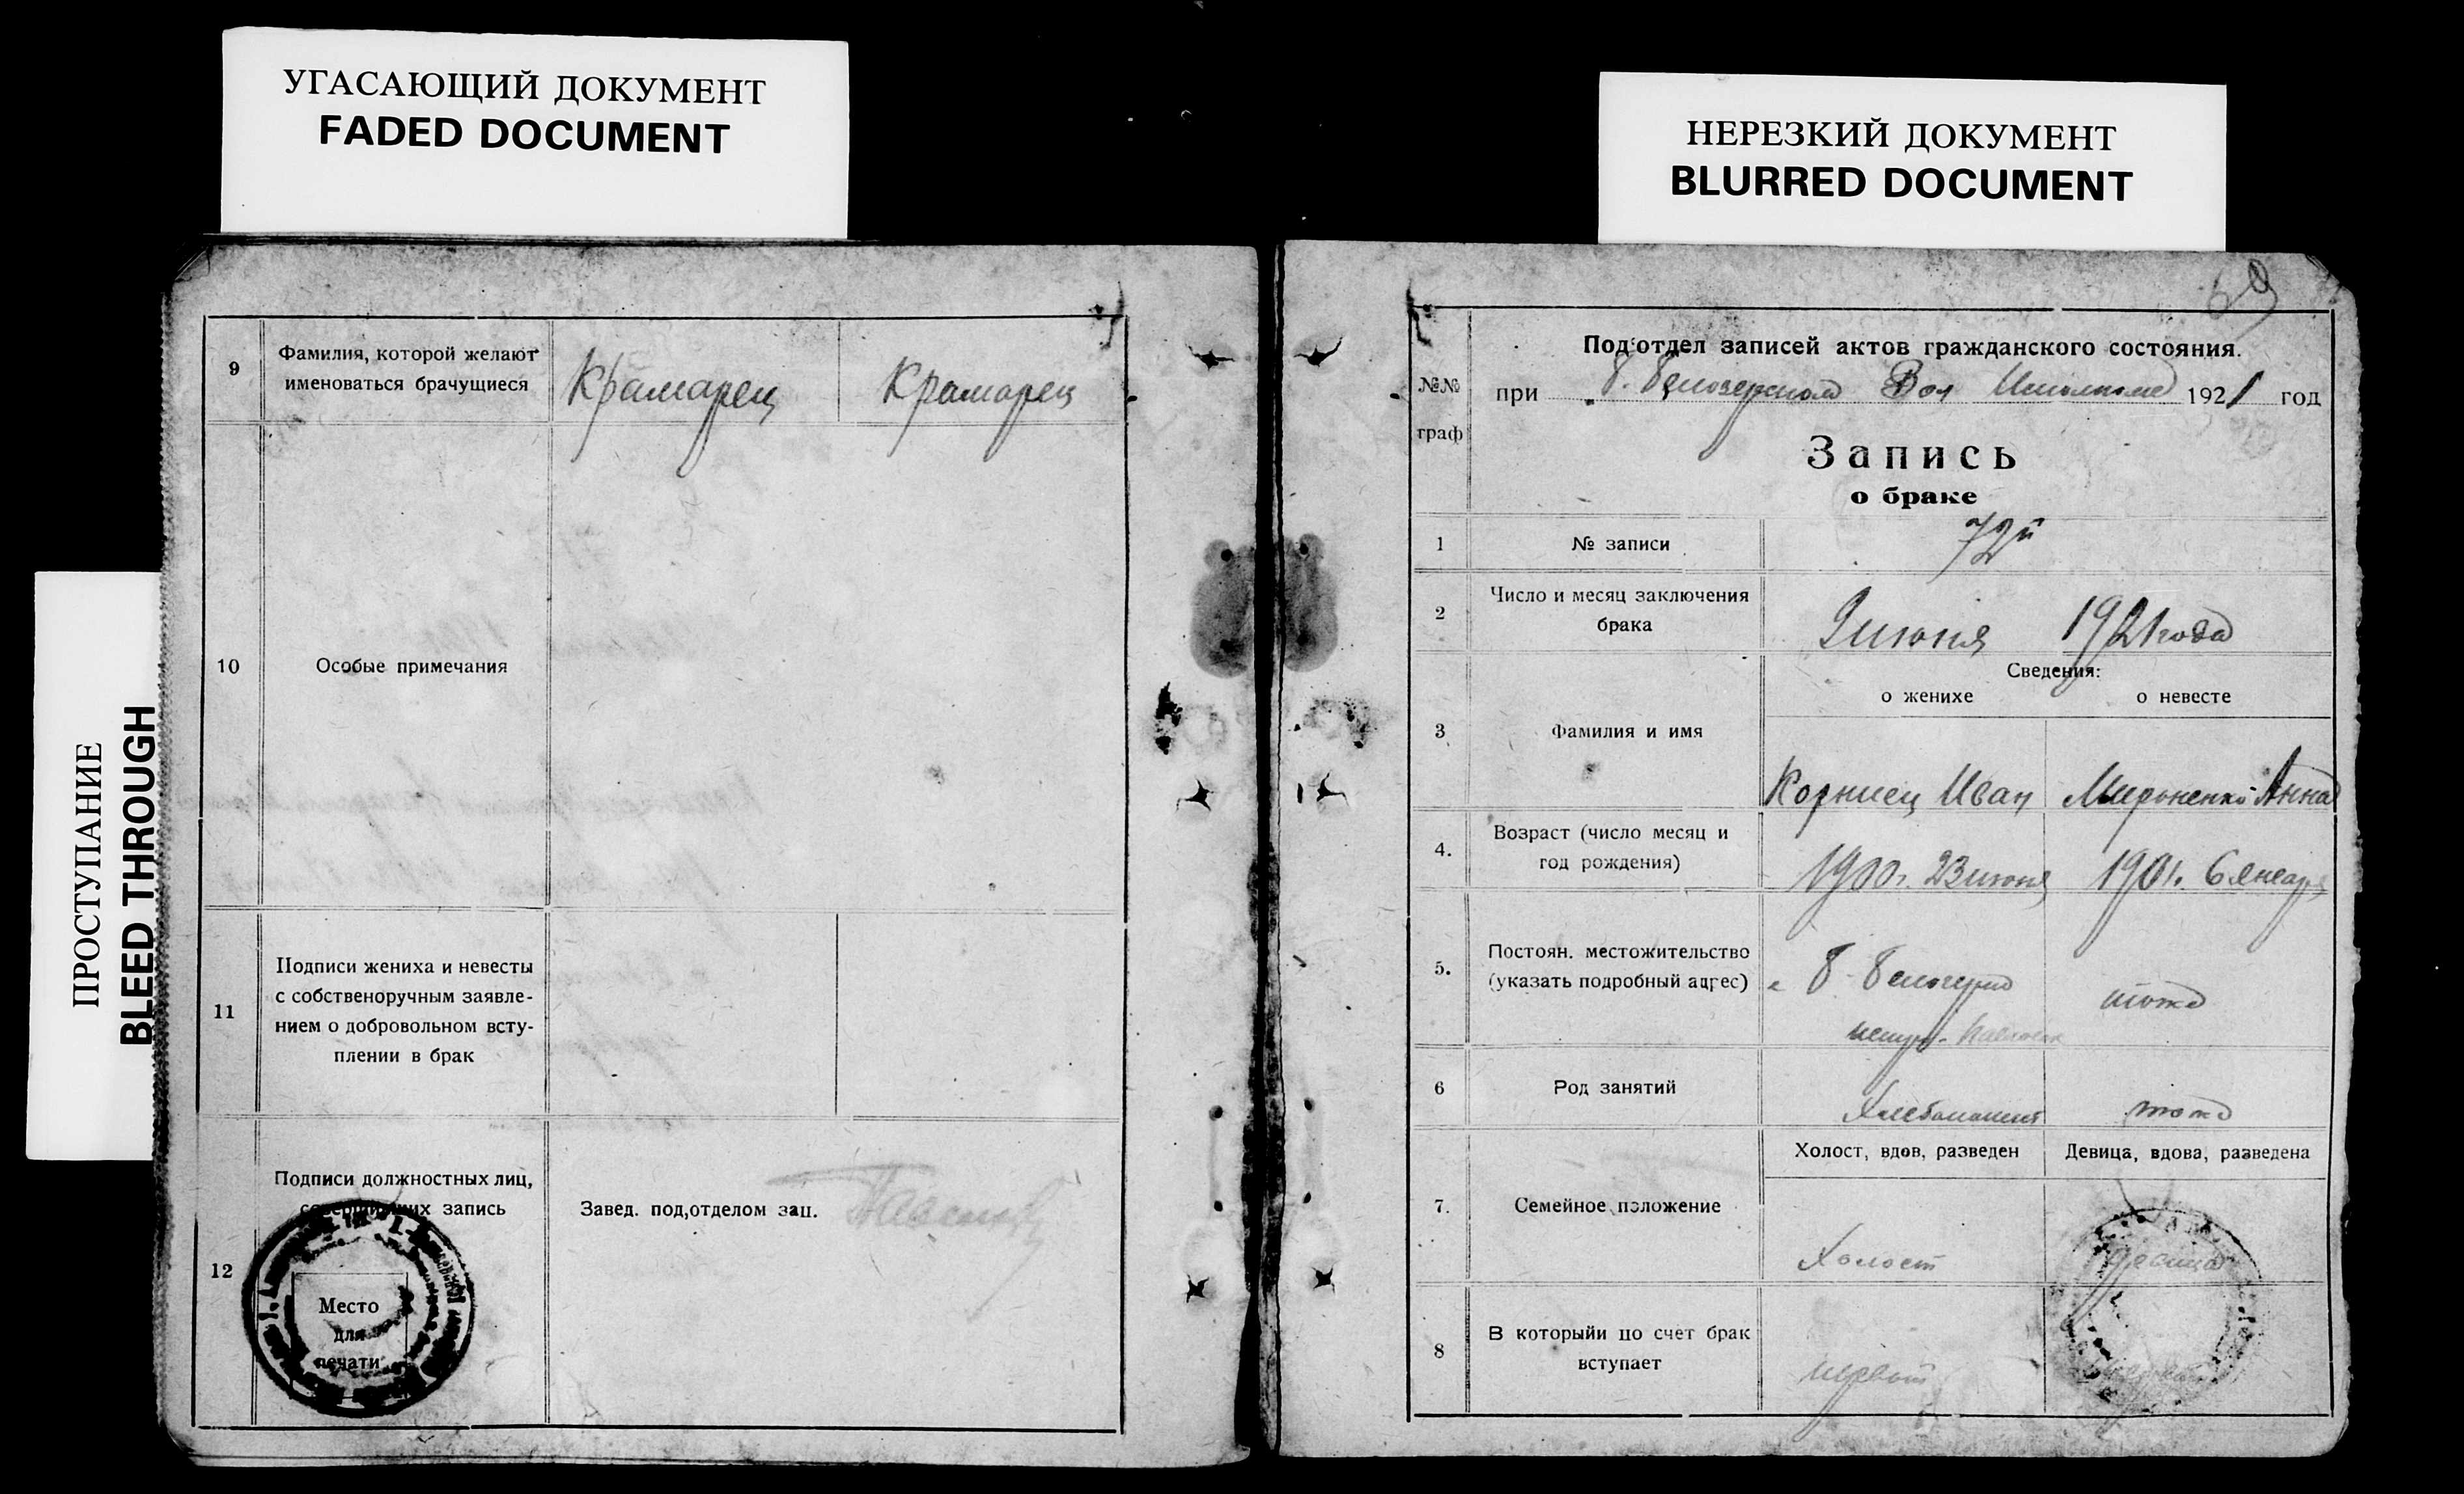 УГАСАЮЩИЙ ДОКУМЕНТ
FADED DOCUMENT
НЕРЕЗКИЙ ДОКУМЕНТ
BLURRED DOCUMENT
ПРОСТУПАНИЕ
BLEED THROUGH
9
Фамилия, которой желают
именоваться брачущиеся
Крамарец
Крамарец
10
Особые примечания
11
Подписи жениха и невесты
с собственоручным заявле-
нием о добровольном всту-
плении в брак
12
Подписи должностных лиц,
совершивших запись
Завед. под,отделом зац.
Место
для
печати
69
№№
граф
Под'отдел записей актов гражданского состояния.
при Б. Белозерском Вол Исполкоме 1921 год
Запись
о браке
1
№ записи
72й
2
Число и месяц заключения
брака
9 июня 1921 года
Сведения:
о женихе
о невесте
3
Фамилия и имя
Корниец Иван
Мироненко Анна
4.
Возраст (число месяц и
год рождения)
1900г. 23 июня
1901г. 6 января
5.
Постоян. местожительство
(указать подробный адрес)
с Б. Белозерка
тоже
6
Род занятий
Хлебопашец
тоже
7.
Семейное положение
Холост, вдов, разведен
Девица, вдова, разведена
Холост
девица
8
В которыйи по счет брак
вступает
первый